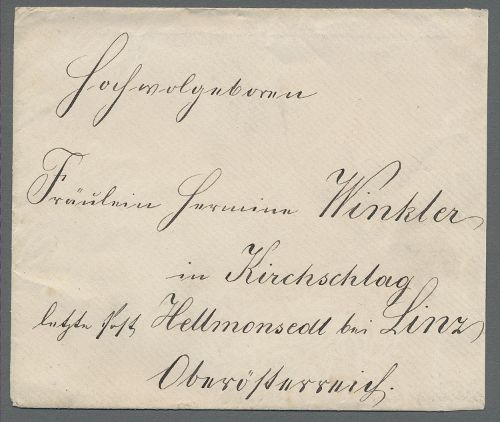 Hochwolgeboren
Fräulein Hermine Winkler
in Kirchschlag
letzte Post Hellmonsedt bei Linz
Oberösterreich.